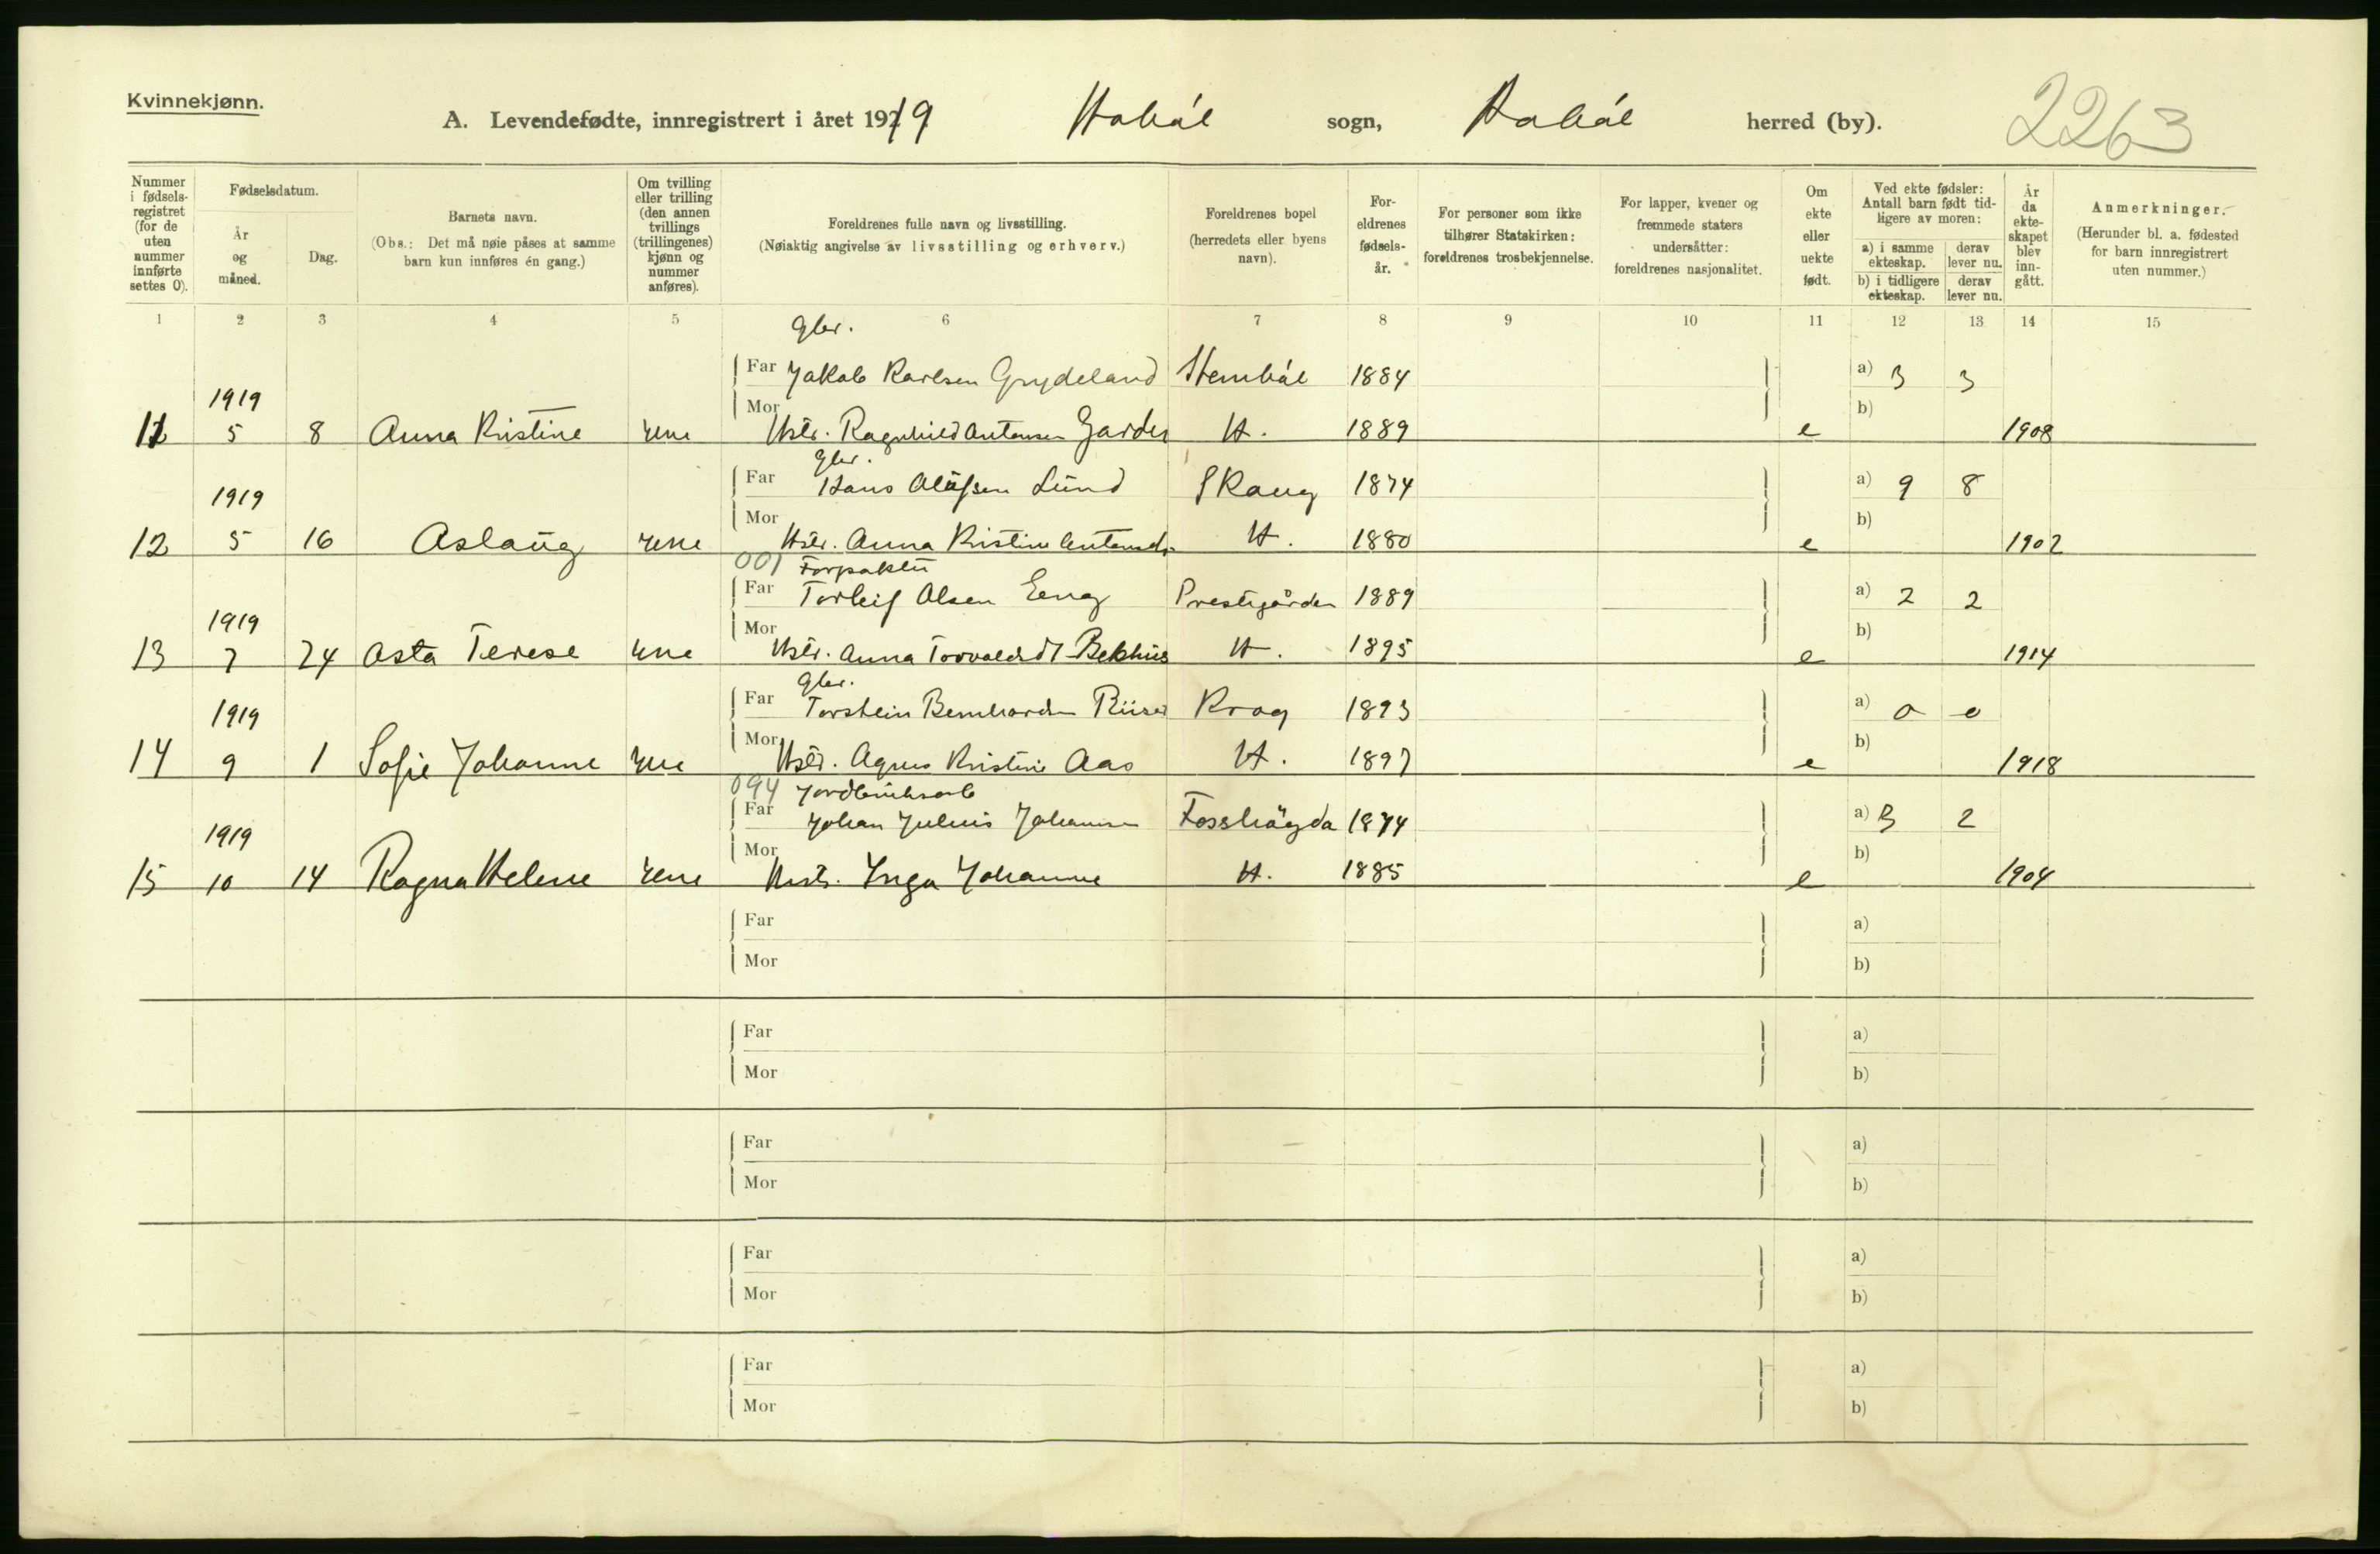 Kvinnekjønn.
A. Levendefødte, innregistrert i året 1919 Hobøl sogn, Hobøl herred (by). 2263
Nummer i fødsels-registret (for de uten nummer innførte settes 0).
Fødselsdatum.
År og måned.
Dag.
Barnets navn.
(Obs.: Det må nøie påses at samme barn kun innføres én gang.)
Om tvilling eller trilling (den annen tvillings (trillingenes) kjønn og nummer anføres).
Foreldrenes fulle navn og livsstilling.
(Nøiaktig angivelse av livsstilling og erhverv.)
Foreldrenes bopel (herredets eller byens navn).
For-eldrenes fødsels-år.
For personer som ikke tilhører Statskirken: foreldrenes trosbekjennelse.
For lapper, kvener og fremmede staters undersåtter: foreldrenes nasjonalitet.
Om ekte eller uekte født.
Ved ekte fødsler: Antall barn født tid-ligere av moren:
a) i samme ekteskap.
derav lever nu.
b) i tidligere ekteskap.
derav lever nu.
År da ekte-skapet blev inn-gått.
Anmerkninger.
(Herunder bl. a. fødested for barn innregistrert uten nummer.)
1 2 3 4 5 6 7 8 9 10 11 12 13 14 15
gbr.
Far Jakob Karlsen Grydeland Stenbøl 1884 a) 3 3
1919 Mor b)
11 5 8 Anna Kristine ene Hstr. Ragnhild Antonsen Garder H. 1889 e 1908
gbr.
Far Hans Olafsen Lund Skaug 1874 a) 9 8
1919 Mor b)
12 5 16 Aslaug ene Hstr. Anna Kristine H. 1880 e 1902
001 Forpakter
Far Torleif Olsen Eeng Prestegården 1889 a) 2 2
1919 Mor b)
13 7 24 Asta Terese ene Hstr. Anna Torvaldsdt Bekhus H. 1895 e 1914
gbr.
Far Torstein Bernhardsen Riiser Krog 1893 a) 0 0
1919 Mor b)
14 9 1 Sofie Johanne ene Hstr. Agnes Kristine Aas H. 1897 e 1918
094 Jordbruksarb
Far Johan Julius Johansen Fosshøgda 1874 a) 3 2
1919 Mor b)
15 10 14 Ragna Helene ene Hustr. Inga Johanne H. 1885 e 1904
Far a)
Mor b)
Far a)
Mor b)
Far a)
Mor b)
Far a)
Mor b)
Far a)
Mor b)